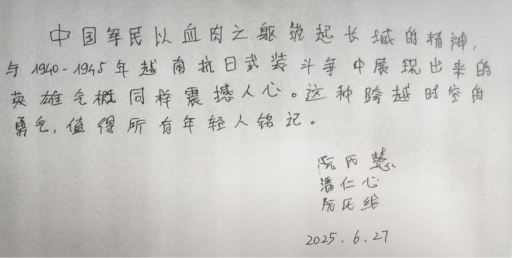 中国军民以血肉之躯筑起长城的精神，
与1940-1945年越南抗日武装斗争中展现出来的
英雄气概同样震撼人心。这种跨越时空的
勇气，值得所有年轻人铭记。
阮氏慧
潘仁心
阮氏
2025.6.27